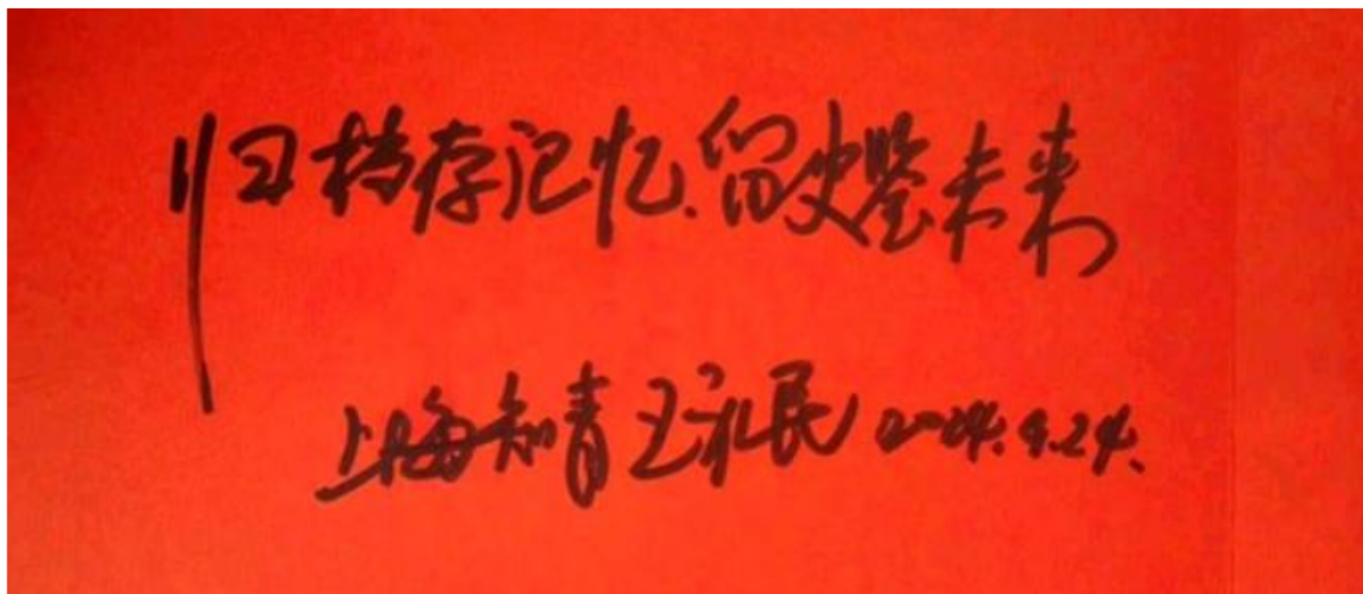 归档存记忆.留史鉴未来
上海知青王礼民 2024.9.24.